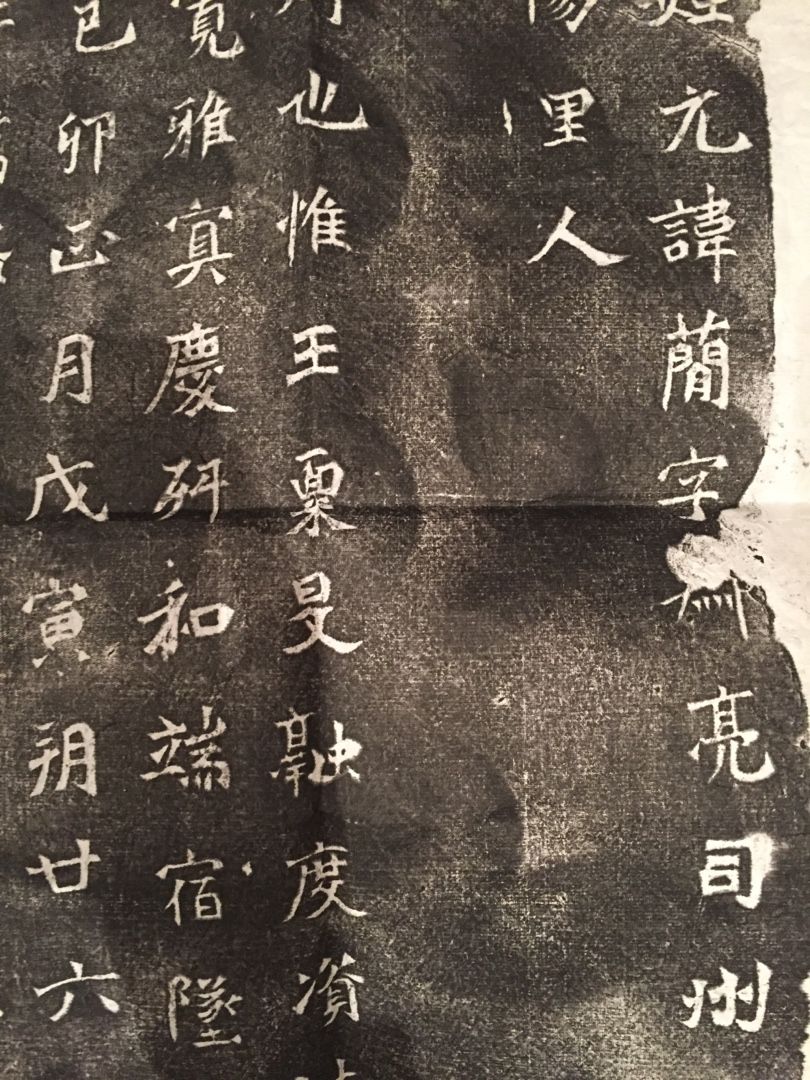 姓元諱簡字亮司州
陽里人
也惟王稟旻融度資
寬雅寘慶和端宿墜
己卯正月戊寅朔廿六